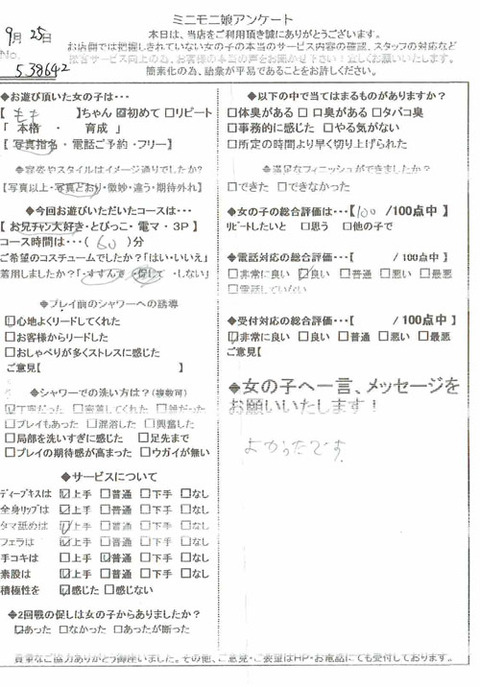 ミニモニ娘アンケート
9月 25日
本日は、当店をご利用頂き誠にありがとうございます。
お店側では把握しきれていない女の子の本当のサービス内容の確認、スタッフの対応など
No. 538642
簡素化の為、語彙が平易であることをお許しください。
◆お遊び頂いた女の子は…
【 もも 】ちゃん ☑初めて □リピート
「 本格 ・ 育成 」
【 写真指名・電話ご予約・フリー】
◆容姿やスタイルはイメージ通りでしたか?
【写真以上・写真どおり・微妙・違う・期待外れ】
◆今回お遊びいただいたコースは…
【 お兄チャン大好き・とびっこ・電マ・3P 】
コース時間は…( 60 )分
ご希望のコスチュームでしたか?「はい・いいえ」
着用しましたか?「・すすんで・促して・しない」
◆プレイ前のシャワーへの誘導
☑心地よくリードしてくれた
□お客様からリードした
□おしゃべりが多くストレスに感じた
ご意見【 】
◆シャワーでの洗い方は?(複数可)
☑丁寧だった □密着してくれた □雑だった
□プレイもあった □混浴した □興奮した
□局部を洗いすぎに感じた □足先まで
□プレイの期待感が高まった □ウガイが無い
◆サービスについて
ディープキスは ☑上手 □普通 □下手 □なし
全身リップは ☑上手 □普通 □下手 □なし
タマ舐めは ☑上手 □普通 □下手 □なし
フェラは ☑上手 □普通 □下手 □なし
手コキは □上手 ☑普通 □下手 □なし
素股は ☑上手 □普通 □下手 □なし
積極性を ☑感じた □感じない
◆2回戦の促しは女の子からありましたか?
☑あった □なかった □あったが断った
◆以下の中で当てはまるものがありますか?
□体臭がある □口臭がある □タバコ臭
□事務的に感じた □やる気がない
□所定の時間より早く切り上げられた
◆満足なフィニッシュができましたか?
□できた □できなかった
◆女の子の総合評価は…【 100 /100点中 】
リピートしたいと □思う □他の子で
◆電話対応の総合評価…【 /100点中 】
□非常に良い ☑良い □普通 □悪い □最悪
□電話していない
◆受付対応の総合評価…【 /100点中 】
☑非常に良い □良い □普通 □悪い □最悪
ご意見【 】
◆女の子へ一言、メッセージを
お願いいたします!
よかったです
貴重なご協力ありがとう御座いました。その他、ご意見・ご要望はHP・お電話にても受付しております。